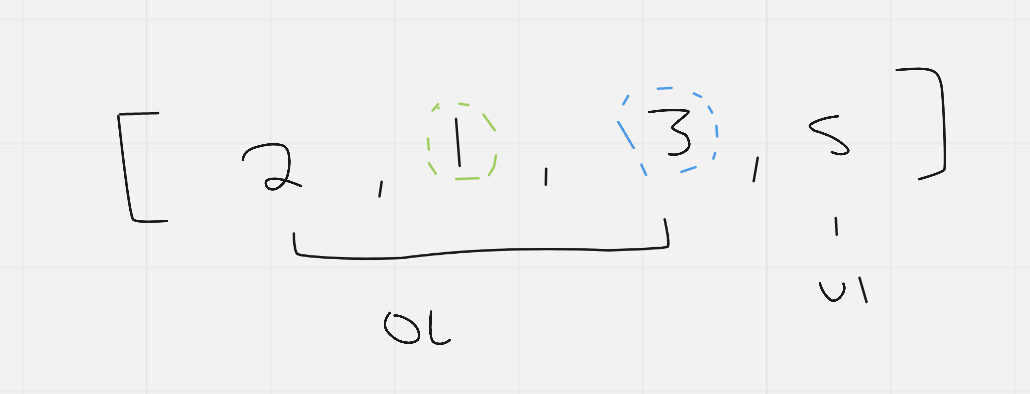 [ 2 , 1 , 3 , 5 ]
OL
UI